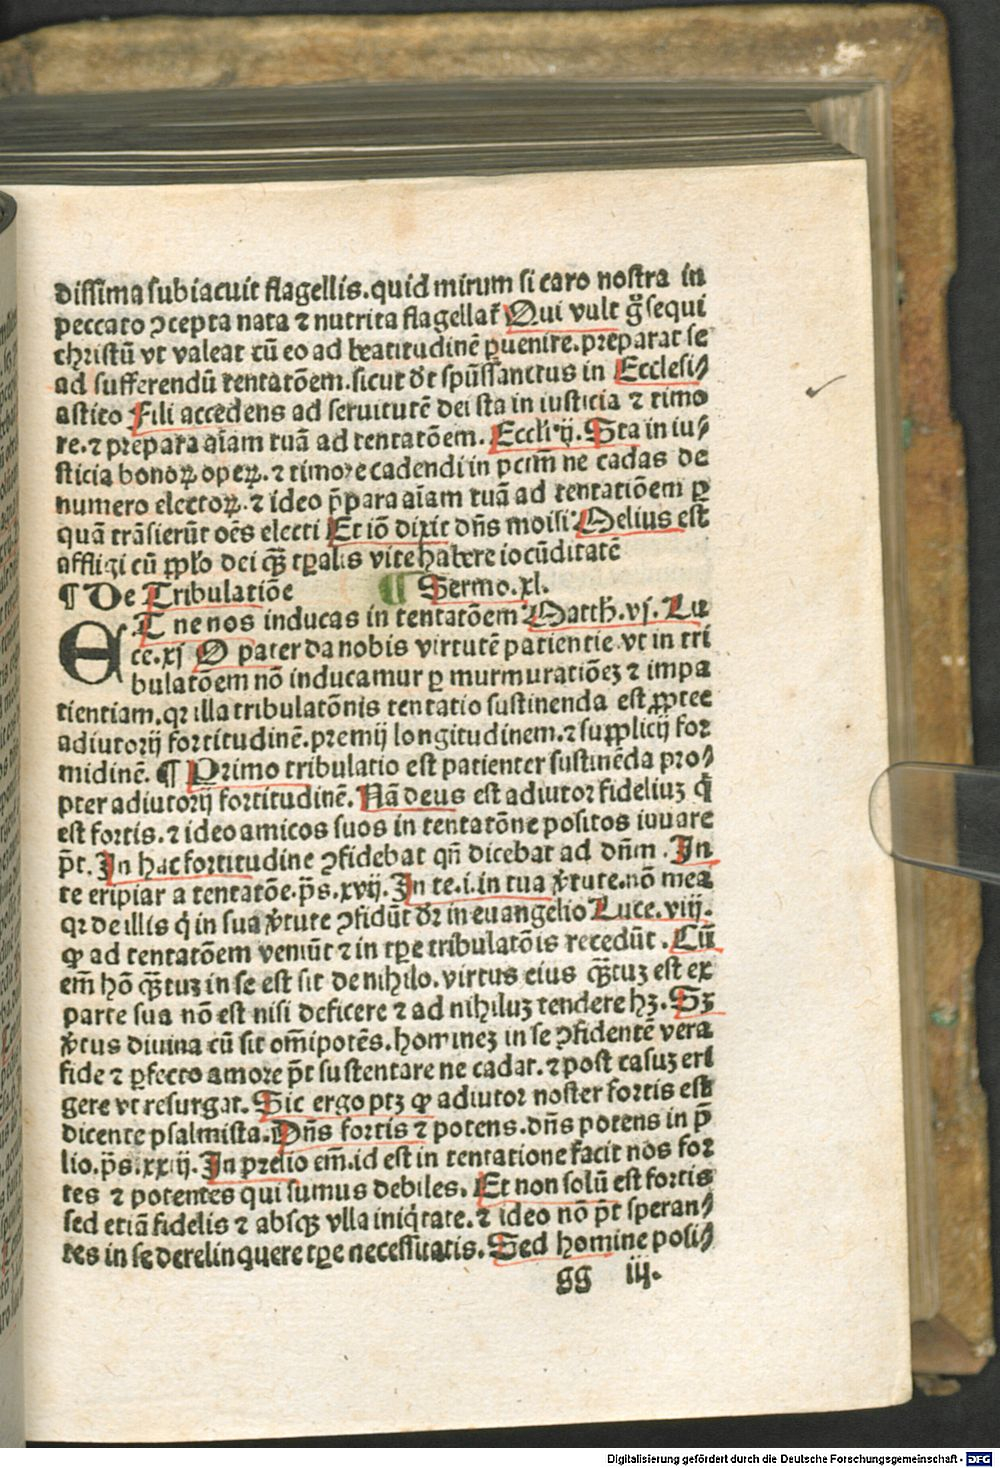 dissima subiacuit flagellis. quid mirum si caro nostra in
peccato ɔcepta nata ⁊ nutrita flagellat᷑ Qui vult g̊ sequi
christū vt valeat cū eo ad beatitudinē ꝑuenire. preparat se
ad sufferendū tentatōem. sicut dr̄ spūssanctus in Ecclesi⸗
astico Fili accedens ad seruitutē dei sta in iusticia ⁊ timo
re. ⁊ prepara aīam tuā ad tentatōem. Eccli͛ ij. Sta in iu⸗
sticia bonoꝝ opeꝝ. ⁊ timore cadendi in pctm̄ ne cadas de
numero electoꝝ. ⁊ ideo p̄para aīam tuā ad tentatiōem ꝑ
quā trāsierūt oēs electi Et iō dixit dn̄s moisi Melius est
affligi cū pp̄lo dei qꝫ tꝑalis vite habere iocūditatē
¶ De Tribulatiōe ¶ Sermo. xl.
ET ne nos inducas in tentatōem Matth. vj. Lu
ce. xj O pater da nobis virtutē patientie vt in tri
bulatōem nō inducamur ꝑ murmuratiōeꝫ ⁊ impa
tientiam. qꝛ illa tribulatōnis tentatio sustinenda est ꝓpter
adiutorij fortitudinē. premij longitudinem. ⁊ supplicij for
midinē. ¶ Primo tribulatio est patienter sustinēda pro⸗
pter adiutorij fortitudinē. Nā deus est adiutor fideliuꝫ q̇
est fortis. ⁊ ideo amicos suos in tentatōne positos iuuare
p̄t. In hac fortitudine ɔfidebat qn̄ dicebat ad dn̄m. In
te eripiar a tentatōe. p̄s. xvij. In te .i. in tua v̓tute. nō mea
qꝛ de illis q̇ in sua v̓tute ɔfidūt dr̄ in euangelio Luce. viij.
ꝙ ad tentatōem veniūt ⁊ in tꝑe tribulatōis recedūt. Cū
em̄ hō qꝫtuꝫ in se est sit de nihilo. virtus eius qꝫtuꝫ est ex
parte sua nō est nisi deficere ⁊ ad nihiluꝫ tendere hꝫ. Sꝫ
v̓tus diuina cū sit om̄ipotēs. homineꝫ in se ɔfidentē vera
fide ⁊ ꝑfecto amore p̄t sustentare ne cadat. ⁊ post casuꝫ eri
gere vt resurgat. Sic ergo ptꝫ ꝙ adiutor noster fortis est
dicente psalmista. Dn̄s fortis ⁊ potens. dn̄s potens in p̄
lio. p̄s. xxiij. In prelio em̄. id est in tentatione facit nos for
tes ⁊ potentes qui sumus debiles. Et non solū est fortis
sed etiā fidelis ⁊ absqꝫ vlla iniq̇tate. ⁊ ideo nō p̄t speran⸗
tes in se derelinquere tꝑe necessitatis. Sed homine posi⸗
gg iij.
Digitalisierung gefördert durch die Deutsche Forschungsgemeinschaft - DFG